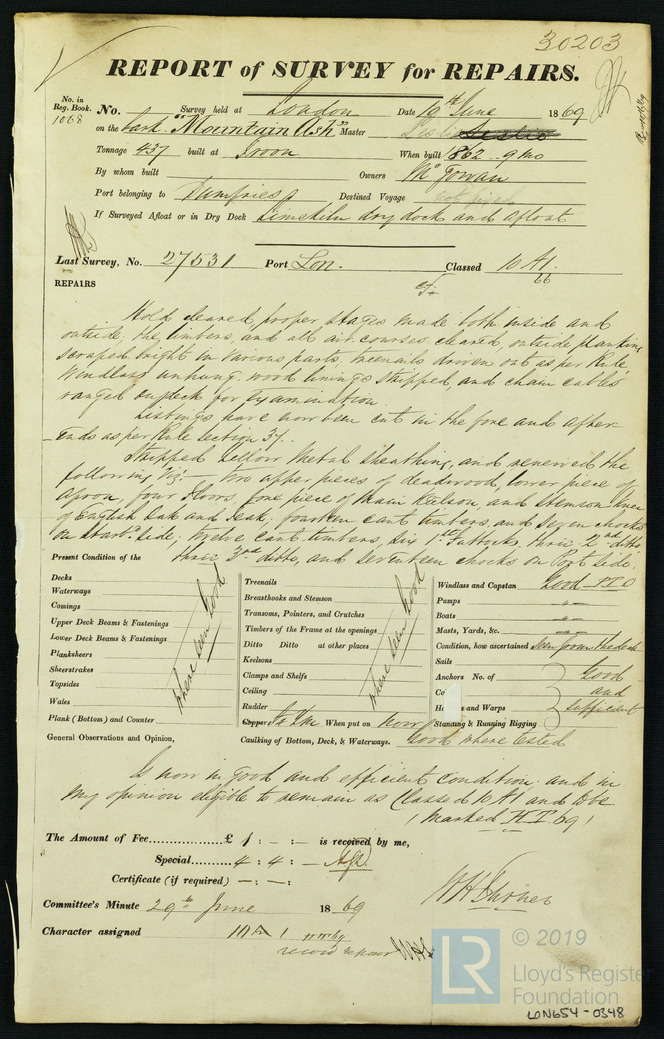 30203
REPORT of SURVEY for REPAIRS.
No. in Reg. Book. 1068
No. Survey held at London Date 19th June 1869
on the bark "Mountain Ash" Master Leslie
Tonnage 437 built at Troon When built 1862 - 9 mo
By whom built Owners McGowan
Port belonging to Dumfries Destined Voyage
If Surveyed Afloat or in Dry Dock Limekiln dry dock and afloat
Last Survey, No. 27531 Port Lon. Classed 10 A1.
66
REPAIRS
Hold cleared, proper stages made both inside and
outside, the timbers, and all air courses cleared, outside planking
scraped bright in various parts, treenails driven out as per Rule,
Windlass unhung, wood linings stripped, and chain cables
ranged on deck for examination.
Listings have now been cut in the fore and after
Ends as per Rule section 37.
Stripped Yellow Metal sheathing, and renewed the
following, Viz. - two upper pieces of deadwood, lower piece of
Apron, four floors, fore piece of Main Keelson, and Stemson Knee
of English Oak and Teak; fourteen cant timbers, and seven chocks
on Starbd. side; twelve cant timbers, six 1st Futtocks, three 2nd ditto,
three 3rd ditto, and seventeen chocks on Port side.
Present Condition of the
Decks
Waterways
Comings
Upper Deck Beams & Fastenings
Lower Deck Beams & Fastenings
Planksheers
Sheerstrakes
Topsides
Wales
Plank (Bottom) and Counter
where seen Good
Treenails
Breasthooks and Stemson
Transoms, Pointers, and Crutches
Timbers of the Frame at the openings
Ditto Ditto at other places
Keelsons
Clamps and Shelfs
Ceiling
Rudder
where seen Good
Copper When put on now
Windlass and Capstan Good
Pumps -"-
Boats -"-
Masts, Yards, &c. -"-
Condition, how ascertained Seen from the deck
Sails
Anchors No. of Good
Co and
H s and Warps sufficient
Standing & Running Rigging
General Observations and Opinion, Caulking of Bottom, Deck, & Waterways. Good where tested
Is now in good and efficient condition, and in
my opinion eligible to remain as Classed 10 A1 and to be
Marked
The Amount of Fee £ 1 : - : - is received by me,
Special 4 : 4 : -
Certificate (if required) - : - :
Committee's Minute 29th June 1869
Character assigned 10 A 1
© 2019
LR
Lloyd's Register
Foundation
LON654-0348